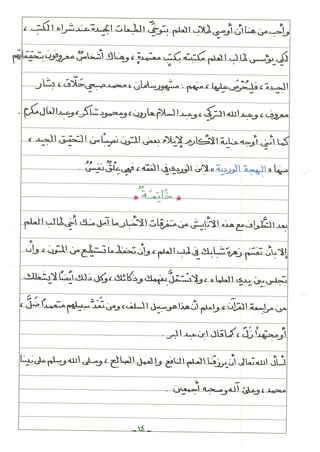 وأحب من هنا أن أوصي طلاب العلم بتوخّي الطبعات الجيدة عند شراء الكتب،
لكي يؤسس طالب العلم مكتبته بكتب معتمدة، وهناك أشخاص معروفون بتحقيقاتهم
الجيدة، فليُحْرَص عليها، منهم: مشهور سلمان، محمد صبحي حلّاق، بشار
معروف، وعبد الله التركي، وعبد السلام هارون، ومحمود شاكر، وعبد العال مكرم.
كما أنني أوجه عناية الأكارم لإيلاء بعض المتون نصيبًا من التحقيق الجيد،
منها «البهجة الوردية» لابن الوردي في الفقه، فهي عِلْقٌ نفيسٌ.
* خَاتِمَةٌ *
بعد التَّطواف مع هذه الأنابيش من متفرقات الأخبار ما آمل منك أخي طالب العلم
إلا بأن تغتنم زهرة شبابك في طلب العلم، وأن تحفظ ما تستطيع من المتون، وأن
تجلس بين يدي العلماء، ولا تستقلَّ بفهمك وذكائك، وكل ذلك أيضًا لا يشغلك
عن مراجعة القرآن، واعلم أن هذا هو سبيل السلف، ومن تعدَّى سبيلهم متعمدًا ضلَّ،
أو مجتهدًا زلَّ، كما قال ابن عبد البر.
أسأل الله تعالى أن يرزقنا العلم النافع والعمل الصالح، وصلى الله وسلم على نبينا
محمد، وعلى آله وصحبه أجمعين.
- ١٤ -